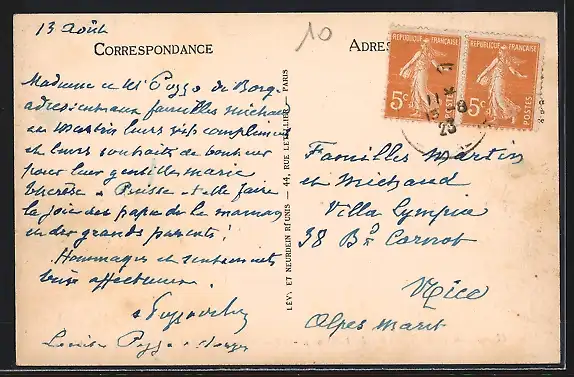 13 Août
CORRESPONDANCE
10
Madame et Mr Pozzo di Borgo
adressent aux familles Michaud
et Martin leurs vifs compliments
et leurs souhaits de bonheur
pour leur gentille Marie
Puisse-t-elle faire
la joie des papa de la maman
et des grands parents!
Hommages et sentiments
affectueux.
LÉVY ET NEURDEIN RÉUNIS — 44, RUE LETELLIER, PARIS
ADRES
REPUBLIQUE FRANÇAISE
5c
POSTES
REPUBLIQUE FRANÇAISE
5c
POSTES
Familles Martin
et Michaud
Villa Olympia
38 Bd Carnot
Nice
Alpes Marit